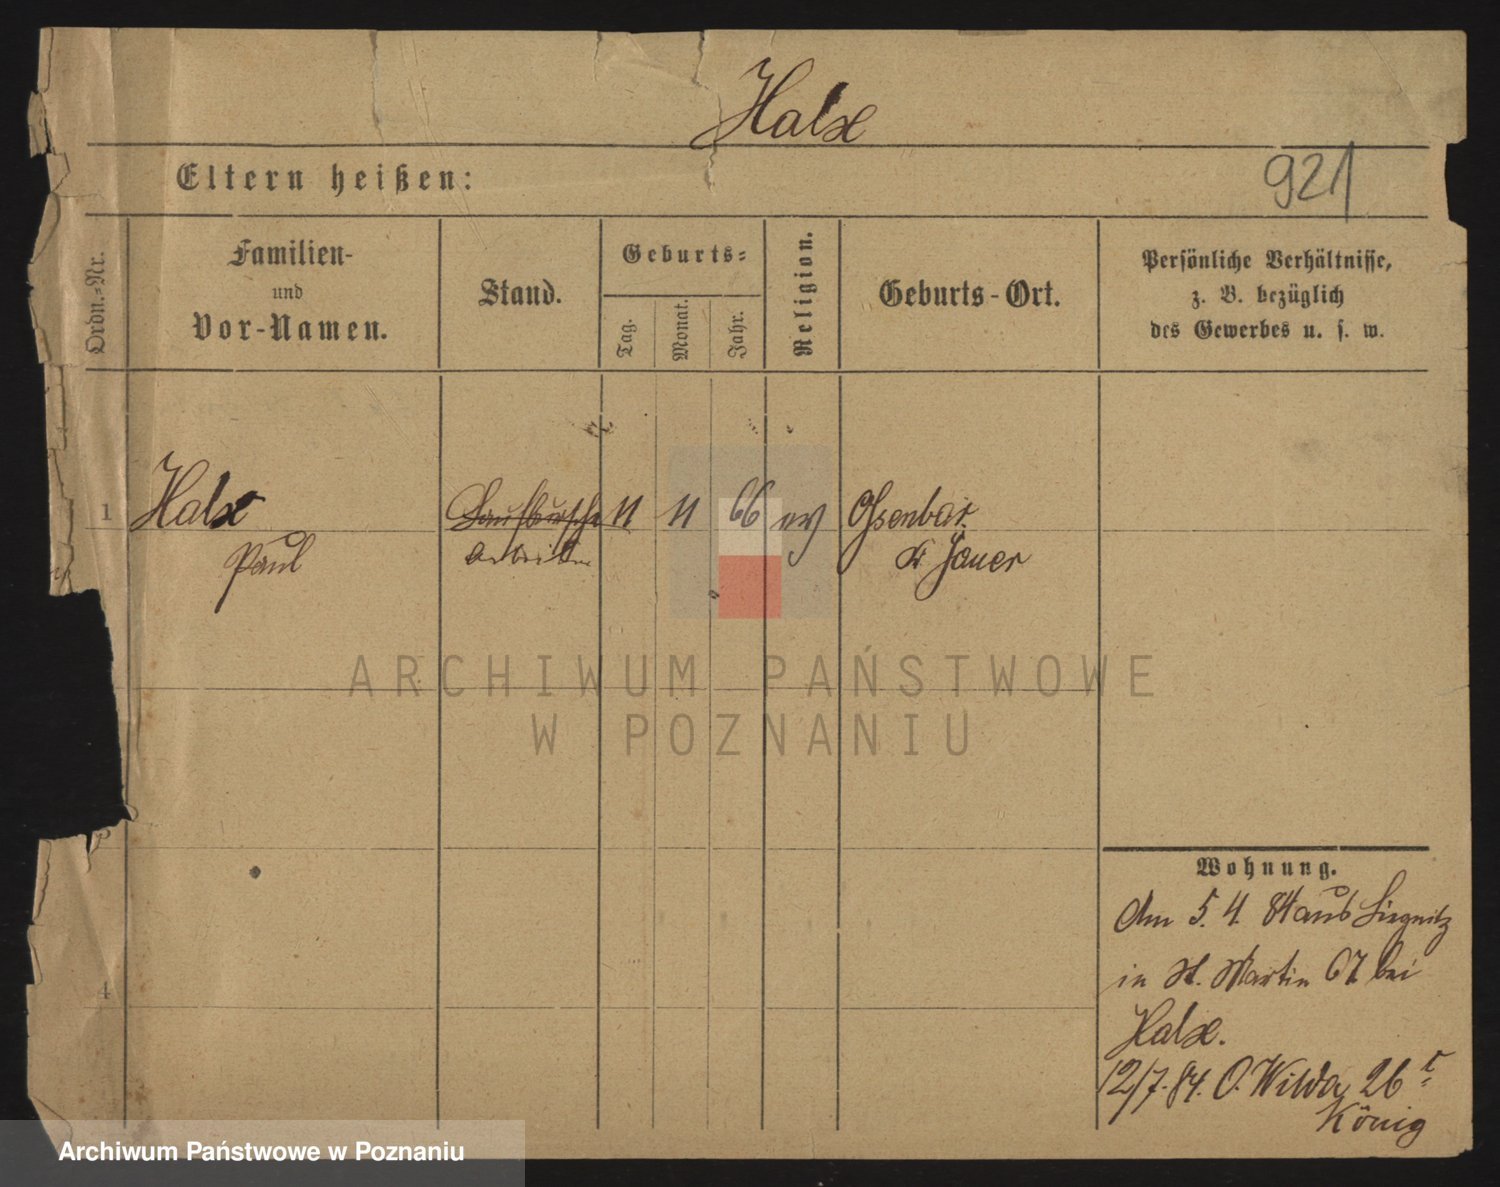 Halx
Eltern heißen:
921
Ordn.-Nr.
Familien-
und
Vor-Namen.
Stand.
Geburts-
Tag.
Monat.
Jahr.
Religion.
Geburts-Ort.
Persönliche Verhältnisse,
z. B. bezüglich
des Gewerbes u. s. w.
1 Halx Laufbursche 11 11 66 ev Ossenbar
Paul Arbeiter Kr Jauer
ARCHIWUM PAŃSTWOWE
W POZNANIU
3
4
Wohnung.
Am 5. 4. 84 aus Liegnitz
in St. Martin 67 bei
Halx.
12/7. 84. O. Wilda 26 r
König
Archiwum Państwowe w Poznaniu